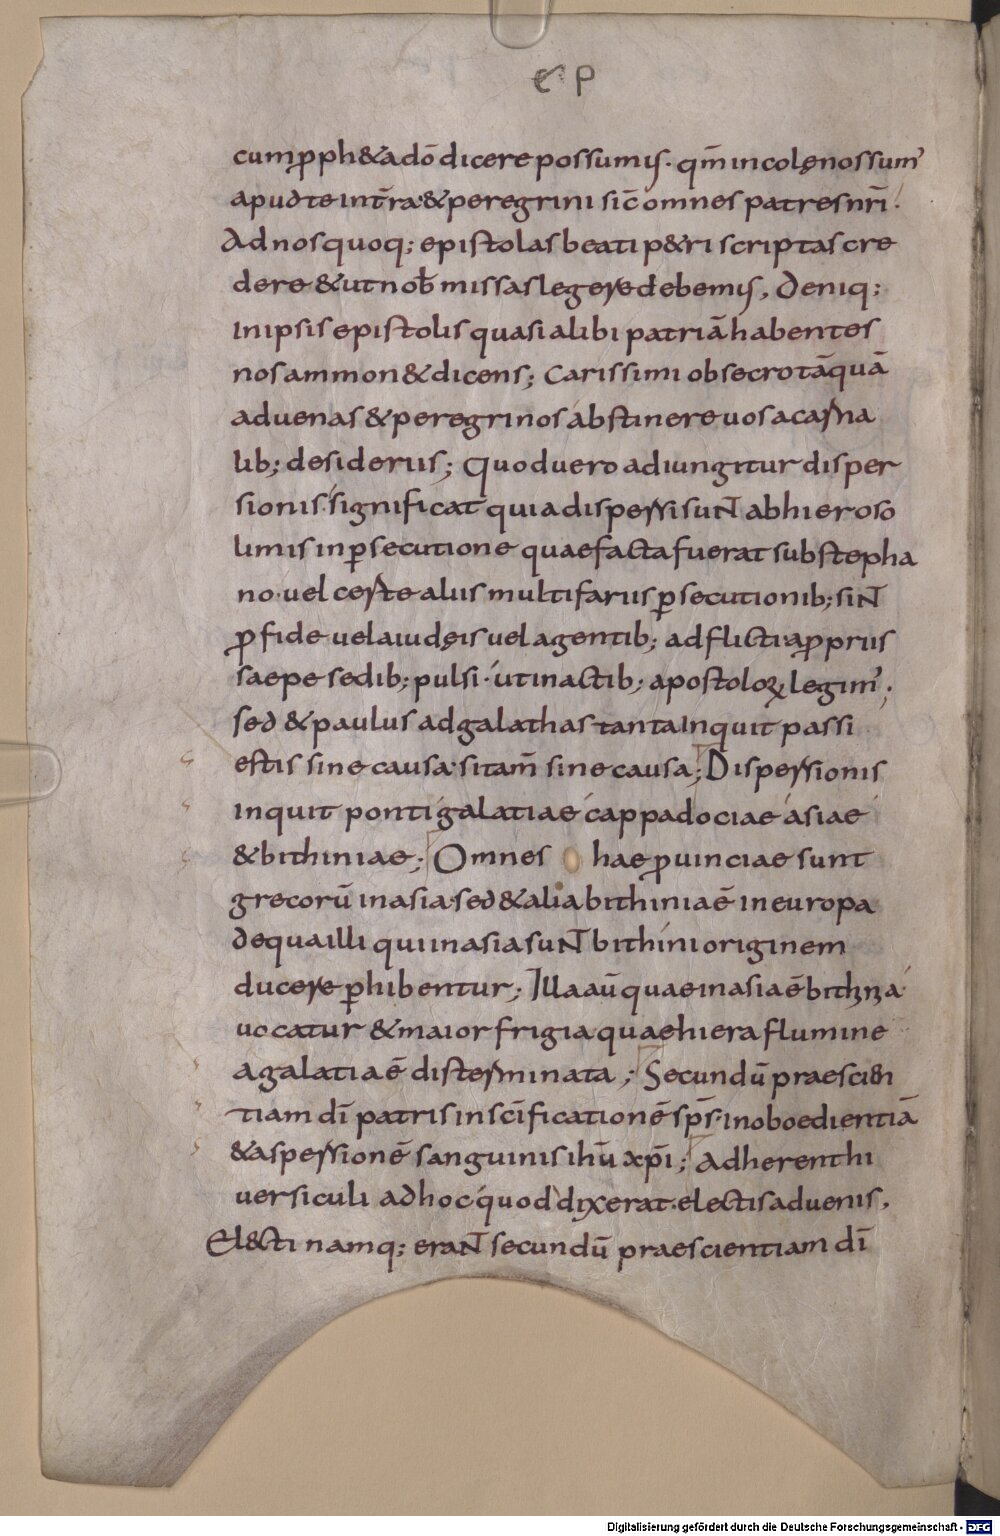 e p
cum ꝓph& ad dō dicere possumus. qm̄ incolę nos sum᾽
apud te in tr̄a & peregrini sic̄ omnes patres nr̄i.
Ad nos quoq; epistolas beati p&ri scriptas cre
dere & ut nob̄ missas legere debemus, Deniq;
in ipsis epistolis quasi alibi patriā habentes
nos ammon& dicens; Carissimi obsecro tāquā
aduenas & peregrinos abstinere uos a carna
lib; desideriis; Quod uero adiungitur disper
sionis. significat quia dispersi sunt ab hieroso
limis in ꝑsecutione quae facta fuerat sub stepha
no. uel certe aliis multifariis ꝑsecutionib; sint
ꝓ fide uel a iudęis uel a gentib; adflicti. a ꝓpriis
saepe sedib; pulsi. ut in actib; apostoloꝝ legim᾽;
sed & paulus ad galathas tanta inquit passi
estis sine causa. si tam̄ sine causa; Dispersionis
inquit ponti galatiae cappadociae asiae
& bithiniae; Omnes hae ꝓuinciae sunt
grecorū in asia. sed & alia bithinia ē in europa
de qua illi qui in asia sunt bithini originem
ducere ꝑhibentur; Illa aū quae in asia ē bithinia
uocatur & maior frigia quae hiera flumine
a galatia ē disterminata; Secundū praescien
tiam dī patris in scīficationē sp̄s. in oboedientiā
& aspersionē sanguinis ih̄u xp̄i; Adherent hi
uersiculi ad hoc quod dixerat. electis aduenis,
El&cti namq; erant secundū praescientiam dī
Digitalisierung gefördert durch die Deutsche Forschungsgemeinschaft - DFG